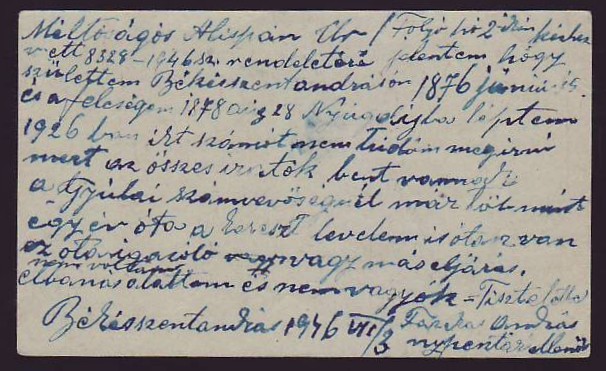 Méltóságos Alispán Úr! Folyó hó 2 ikán kézhez
vett 8328-1946 sz. rendeletére jelentem hogy
születtem Békésszentandráson 1876 június 15.
és a feleségem 1878 aug 28 Nyugdíjba léptem
1926 ban írt számot nem tudom megírni
mert az összes iratok bent vannak
a Gyulai számvevőségnél már több mint
egy év óta a kereszt levelem is ótan van
ez óta igazoló vagy más eljárás.
nem voltam
elbánás alattam és nem vagyok = Tisztelettel
Békésszentandrás 1946 VII/3 Fazekas András